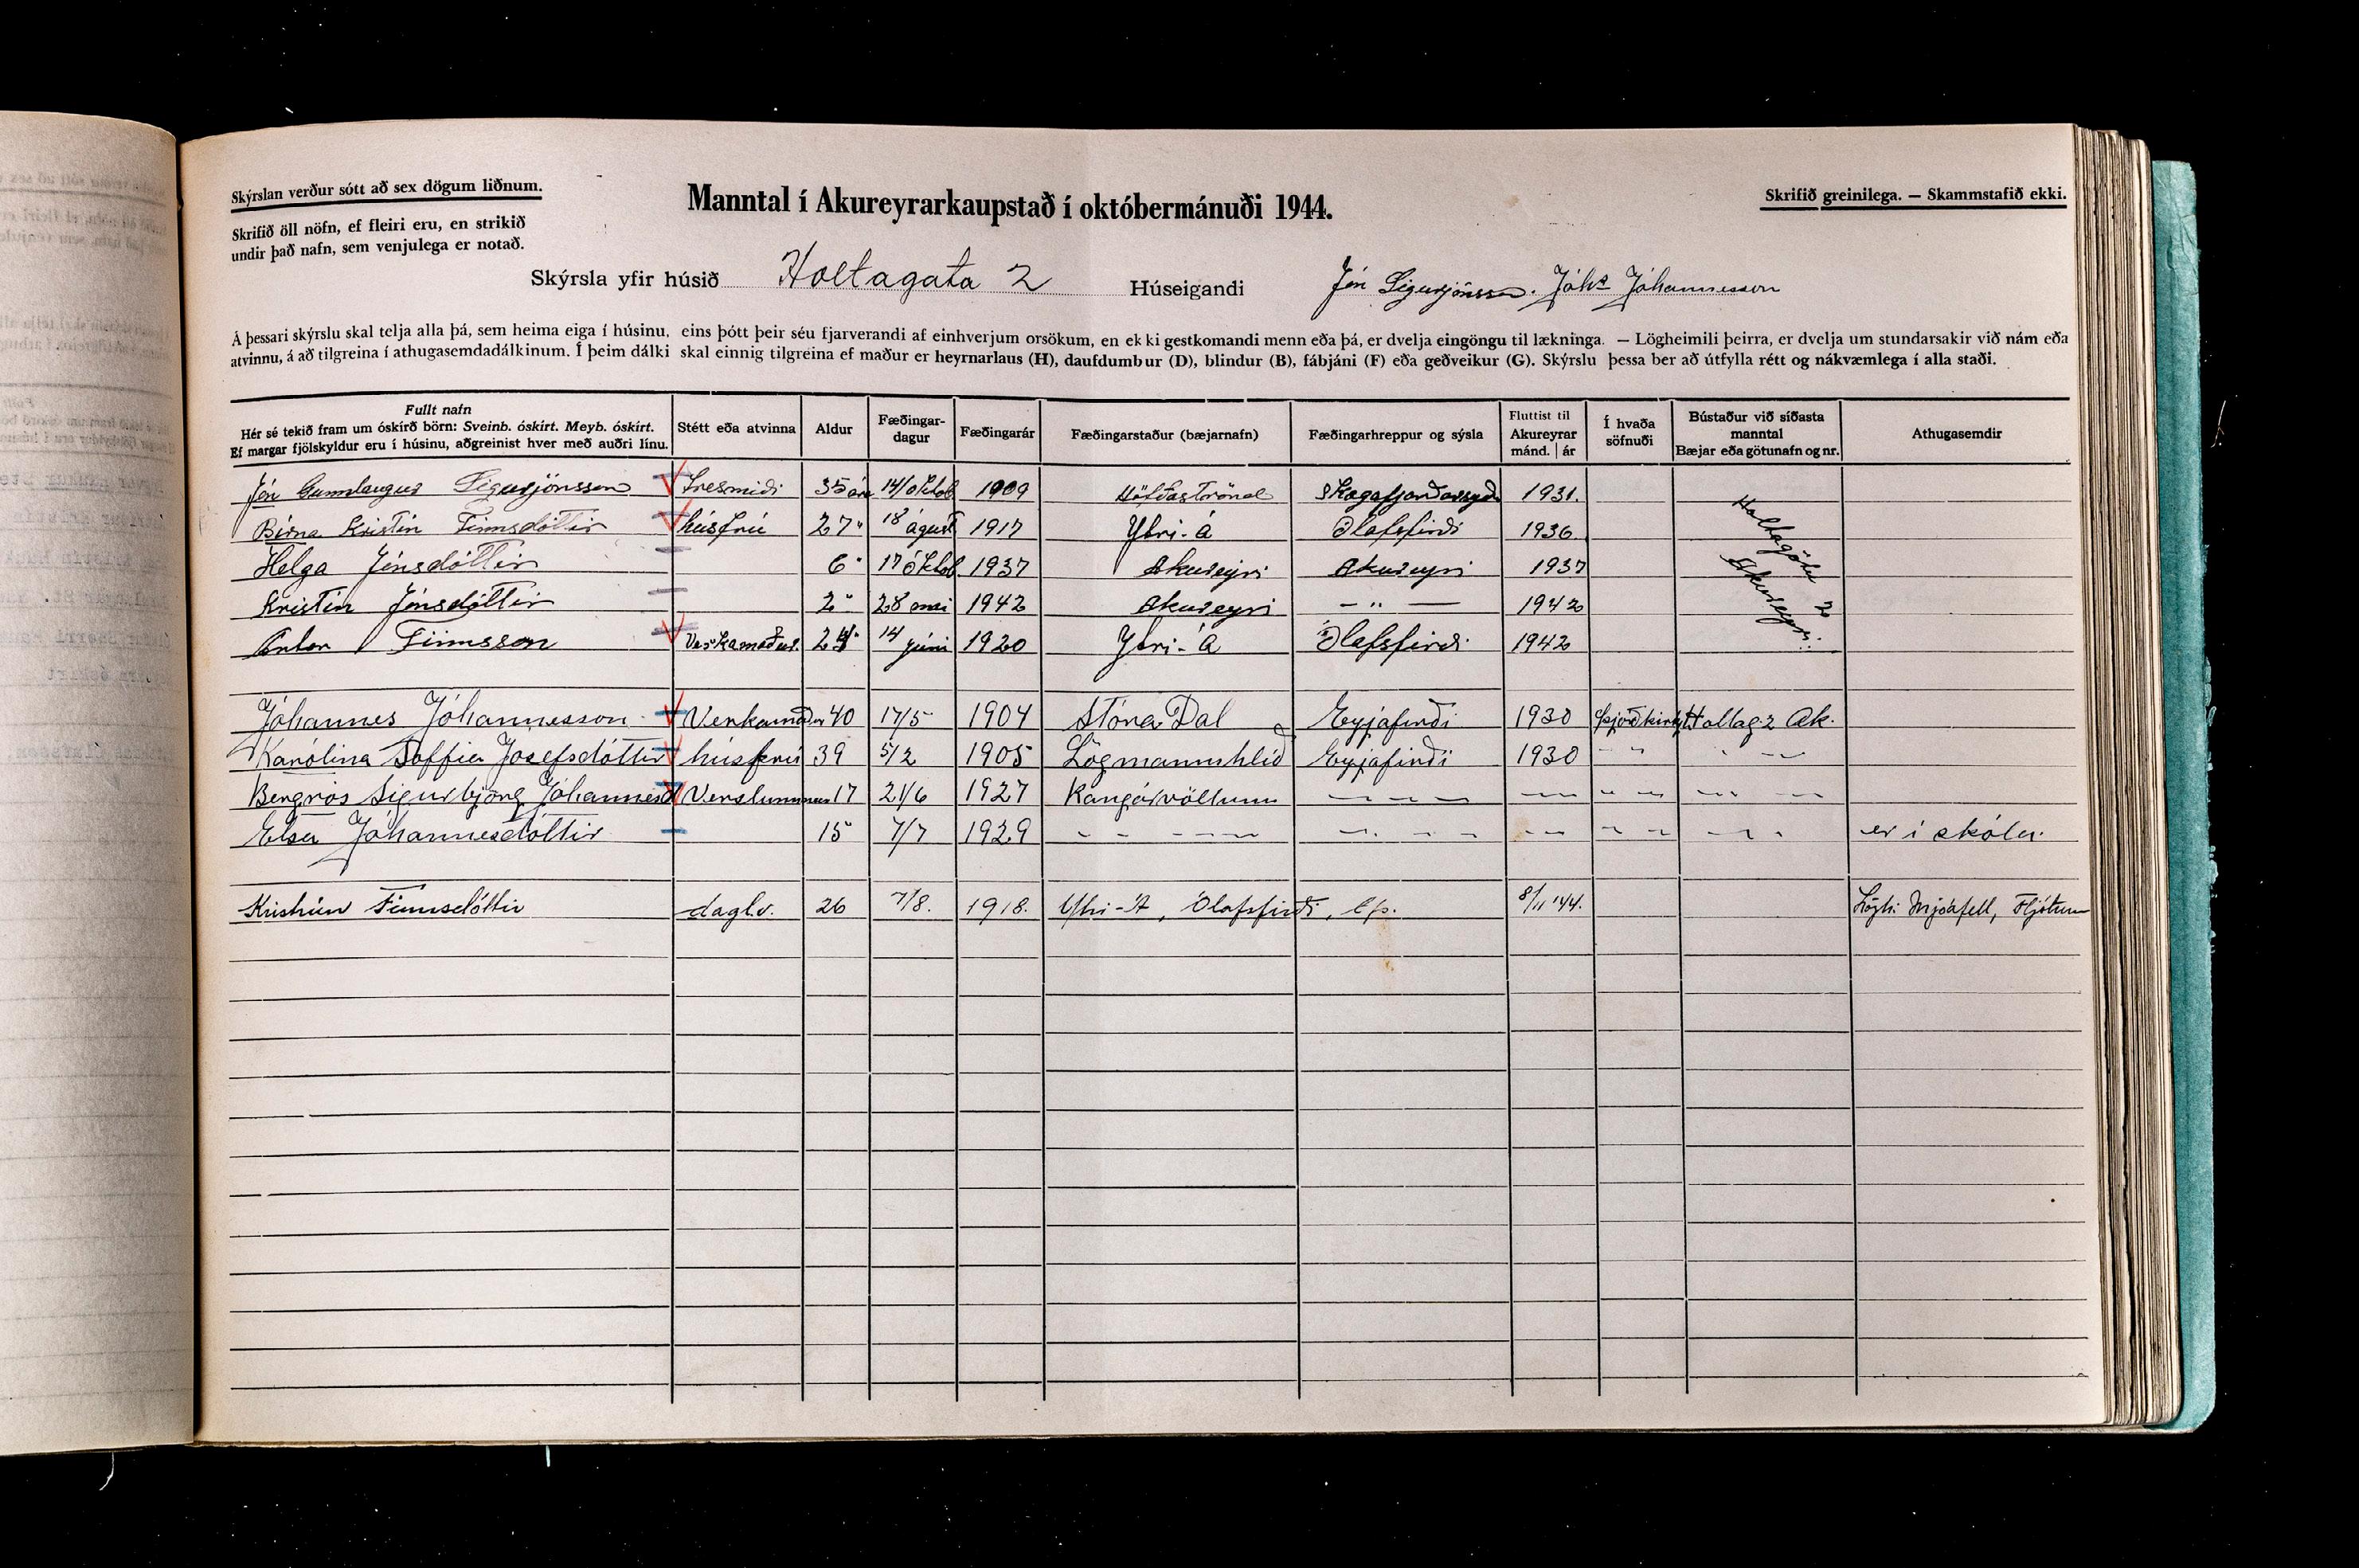 Skýrslan verður sótt að sex dögum liðnum.
Skrifið öll nöfn, ef fleiri eru, en strikið
undir það nafn, sem venjulega er notað.
Manntal í Akureyrarkaupstað í októbermánuði 1944.
Skrifið greinilega. — Skammstafið ekki.
Skýrsla yfir húsið Holtagata 2 Húseigandi Jón Sigurjónsson. Jóhs Jóhannesson
Á þessari skýrslu skal telja alla þá, sem heima eiga í húsinu, eins þótt þeir séu fjarverandi af einhverjum orsökum, en ekki gestkomandi menn eða þá, er dvelja eingöngu til lækninga. — Lögheimili þeirra, er dvelja um stundarsakir við nám eða
atvinnu, á að tilgreina í athugasemdadálkinum. Í þeim dálki skal einnig tilgreina ef maður er heyrnarlaus (H), daufdumbur (D), blindur (B), fábjáni (F) eða geðveikur (G). Skýrslu þessa ber að útfylla rétt og nákvæmlega í alla staði.
Fullt nafn
Hér sé tekið fram um óskírð börn: Sveinb. óskírt. Meyb. óskírt.
Ef margar fjölskyldur eru í húsinu, aðgreinist hver með auðri línu.
Stétt eða atvinna
Aldur
Fæðingar-
dagur
Fæðingarár
Fæðingarstaður (bæjarnafn)
Fæðingarhreppur og sýsla
Fluttist til
Akureyrar
mánd. | ár
Í hvaða
söfnuði
Bústaður við síðasta
manntal
Bæjar eða götunafn og nr.
Athugasemdir
Jón Gunnlaugur Sigurjónsson Tresmiði 35 ára 14/oktob 1909 Höfðaströnd Skagafjarðarsýslu 1931.
Birna Kristín Finnsdóttir húsfrú 27 " 18 ágúst 1917 Ytri-á Ólafsfirði 1936
Helga Jónsdóttir 6 " 17 Oktob. 1937 Akureyri Akureyri 1937
Kristín Jónsdóttir 2 " 28 mai 1942 Akureyri — " — 1942
Anton Finnsson Verkamaður. 24 " 14 júni 1920 Ytri-Á Ólafsfirði 1942
Holtagötu 2
Akureyri
Jóhannes Jóhannesson Verkamaður 40 17/5 1904 Stóra Dal Eyjafirði 1930 Þjóðkirkj Holtag 2 Ak.
Karólína Soffía Jósefsdóttir húsfrú 39 5/2 1905 Lögmannshlíð Eyjafirði 1930 - " - - " -
Bergrós Sigurbjörg Jóhannesd 17 21/6 1927 Kangárvöllum — — — — — — — — —
Elsa Jóhannesdóttir 15 7/7 1929 — — — — — — — — — — — er í skóla.
Kristrún Finnsdóttir daglv. 26 7/8. 1918. Ytri-Á, Ólafsfirði, Ef. 8/11 '44. Lögh: Mjóafell, Fljótum